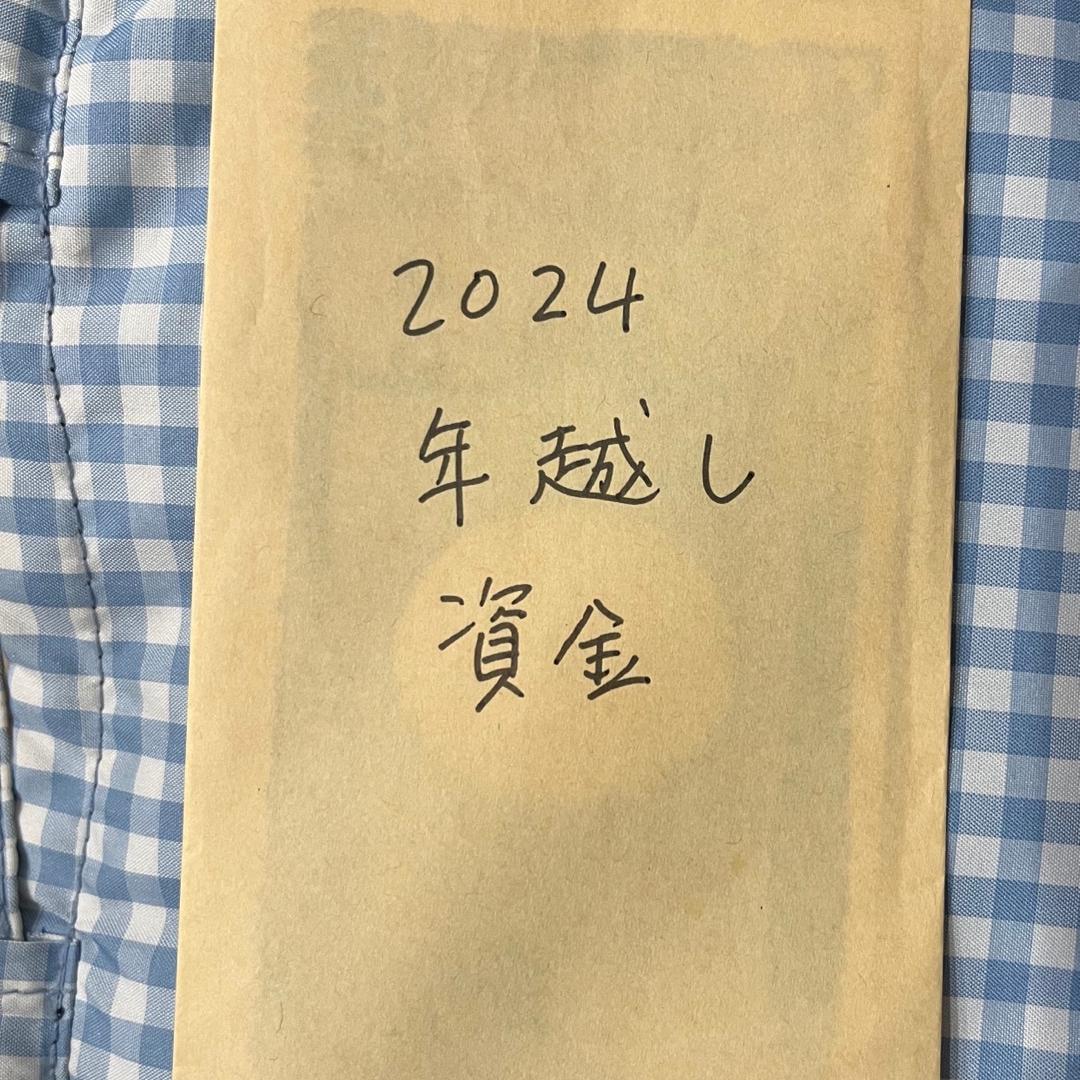 2024
年越し
資金